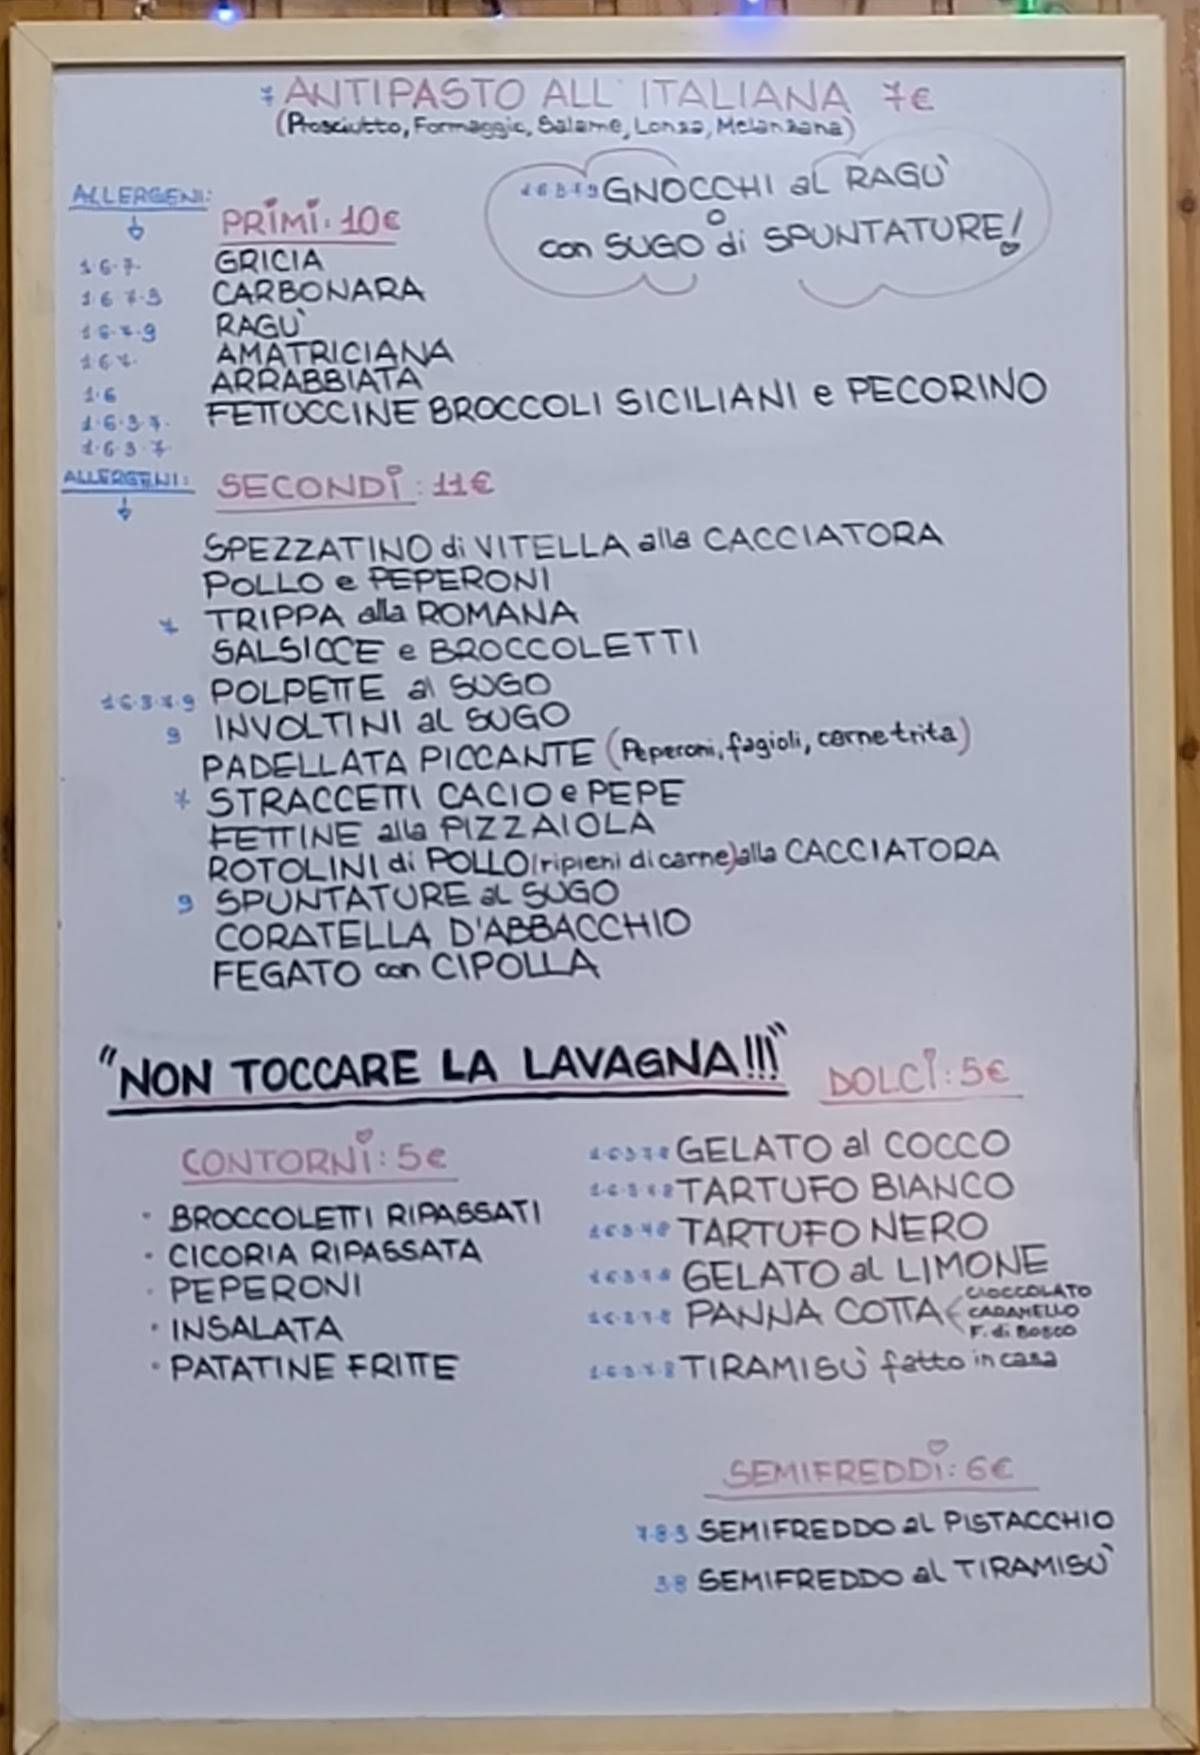 7 ANTIPASTO ALL' ITALIANA 7€
(Prosciutto, Formaggio, Salame, Lonza, Melanzana)
1 6 3 7 9 GNOCCHI al RAGÙ
o
con SUGO di SPUNTATURE!
ALLERGENI:
PRIMI: 10€
1·6·7· GRICIA
1·6·7·3 CARBONARA
1·6·7·9 RAGÙ
1·6·7· AMATRICIANA
1·6 ARRABBIATA
1·6·3·7· FETTUCCINE BROCCOLI SICILIANI e PECORINO
1·6·3·7·
ALLERGENI: SECONDI: 11€
SPEZZATINO di VITELLA alla CACCIATORA
POLLO e PEPERONI
7 TRIPPA alla ROMANA
SALSICCE e BROCCOLETTI
1·6·3·7·9 POLPETTE al SUGO
9 INVOLTINI al SUGO
PADELLATA PICCANTE (Peperoni, fagioli, carne trita)
7 STRACCETTI CACIO e PEPE
FETTINE alla PIZZAIOLA
ROTOLINI di POLLO (ripieni di carne) alla CACCIATORA
9 SPUNTATURE al SUGO
CORATELLA D'ABBACCHIO
FEGATO con CIPOLLA
"NON TOCCARE LA LAVAGNA!!!"
CONTORNI: 5€
· BROCCOLETTI RIPASSATI
· CICORIA RIPASSATA
· PEPERONI
· INSALATA
· PATATINE FRITTE
DOLCI: 5€
1·6·3·7·8 GELATO al COCCO
1·6·3·7·8 TARTUFO BIANCO
1·6·3·7·8 TARTUFO NERO
1·6·3·7·8 GELATO al LIMONE
1·6·3·7·8 PANNA COTTA
CIOCCOLATO
CARAMELLO
F. di BOSCO
1·6·3·7·8 TIRAMISÙ fatto in casa
SEMIFREDDI: 6€
7·8·3 SEMIFREDDO al PISTACCHIO
3·8 SEMIFREDDO al TIRAMISÙ